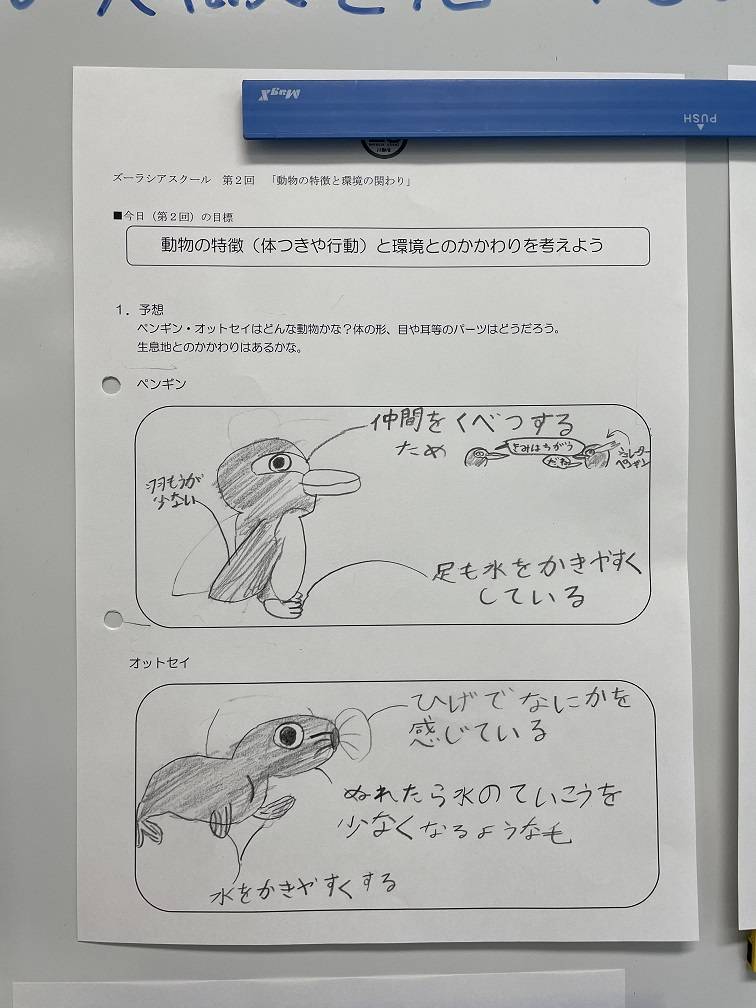 MugX
PUSH
ズーラシアスクール 第２回 「動物の特徴と環境の関わり」
■今日（第２回）の目標
動物の特徴（体つきや行動）と環境とのかかわりを考えよう
１．予想
ペンギン・オットセイはどんな動物かな？体の形、目や耳等のパーツはどうだろう。
生息地とのかかわりはあるかな。
ペンギン
仲間をくべつする
ため
きみはちがう
だね
ペンギン
羽もうが
少ない
足も水をかきやすく
している
オットセイ
ひげでなにかを
感じている
ぬれたら水のていこうを
少なくなるようなも
水をかきやすくする